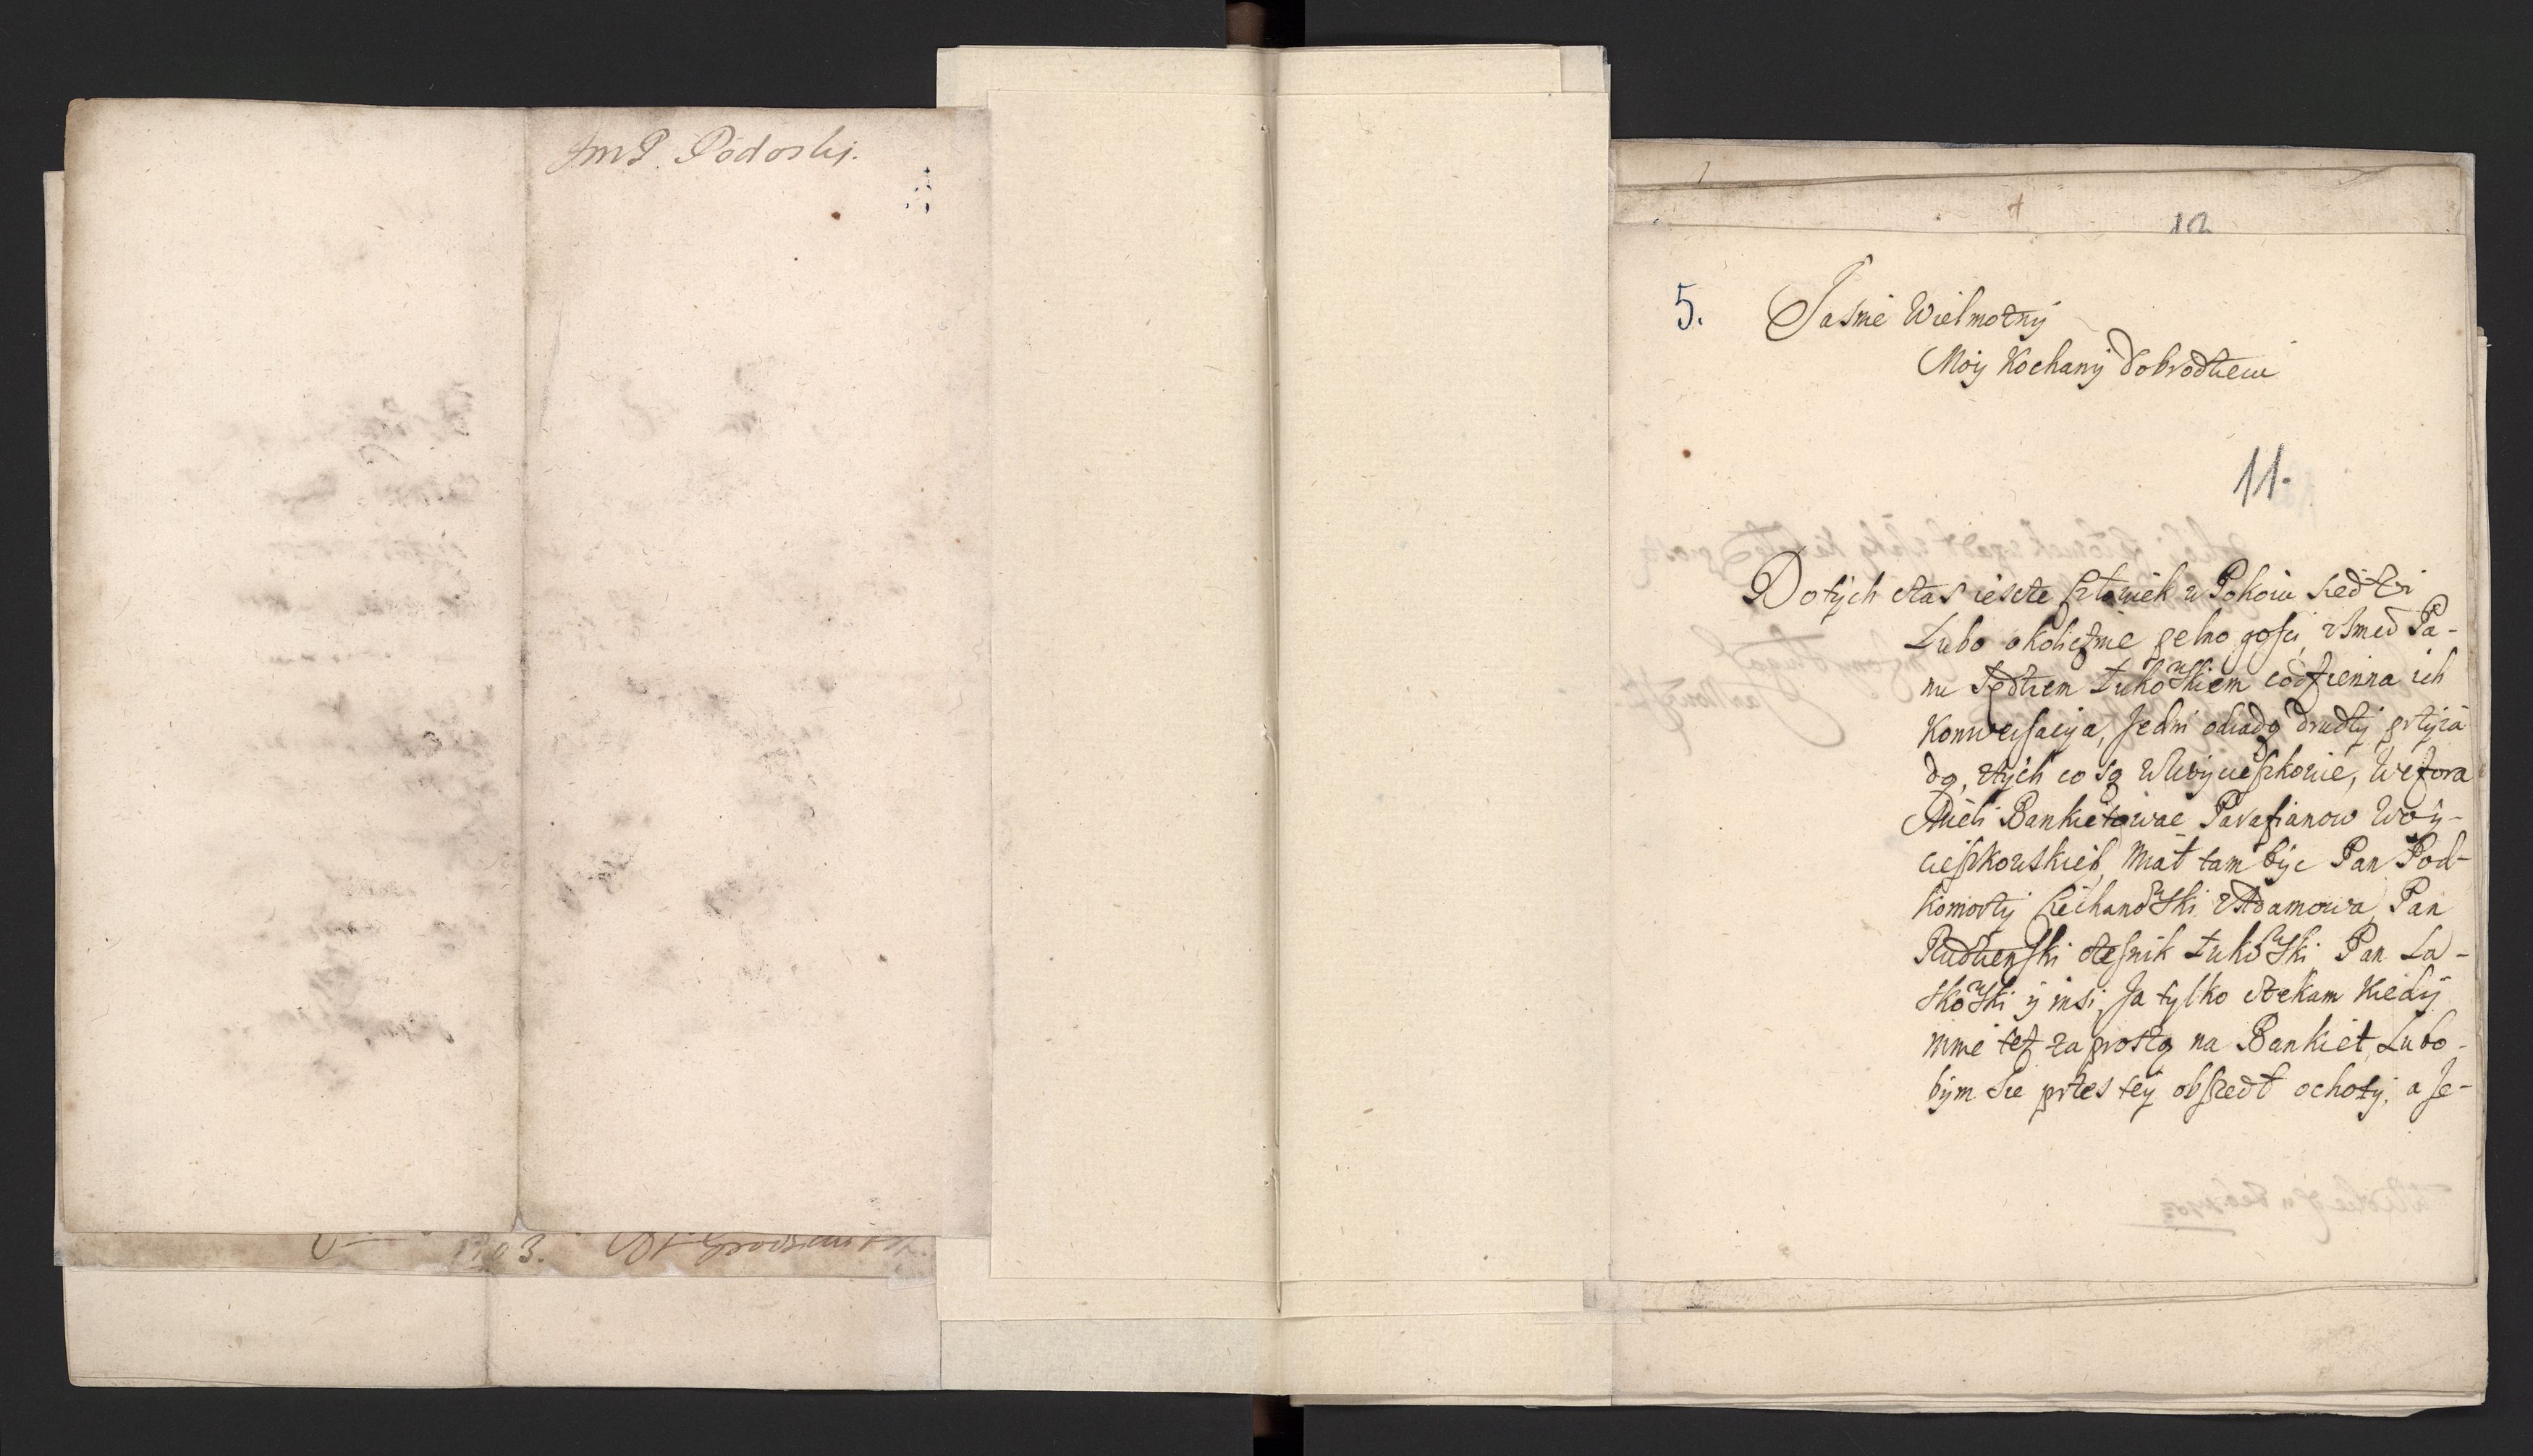 JmP. Podoski.
1703.
12
5.
Jasnie Wielmożny
Moy Kochany Dobrodzieiu
11.
Do tych czas ieszcze człowiek w Pokoiu siedzi
Lubo okolicznie pełno gosci, z Jmcią Pa-
nu Sędziem Łukowskiem codzienna ich
Konwersacya, Jedni odiadą drudzy przyia
dą, z tych co są w Woycieszkowie, Wczora
Mieli Bankietowac Parafianow Woy-
cieszkowskich, miał tam byc Pan Pod-
Komorzy Ciechanowski z Adamowa, Pan
Rudzienski czesnik Łukowski Pan La-
skowski y insi, Ja tylko czekam kiedy
mnie też zaproszą na Bankiet, Lubo-
bym sie przes tey obszedł ochoty, a Je-